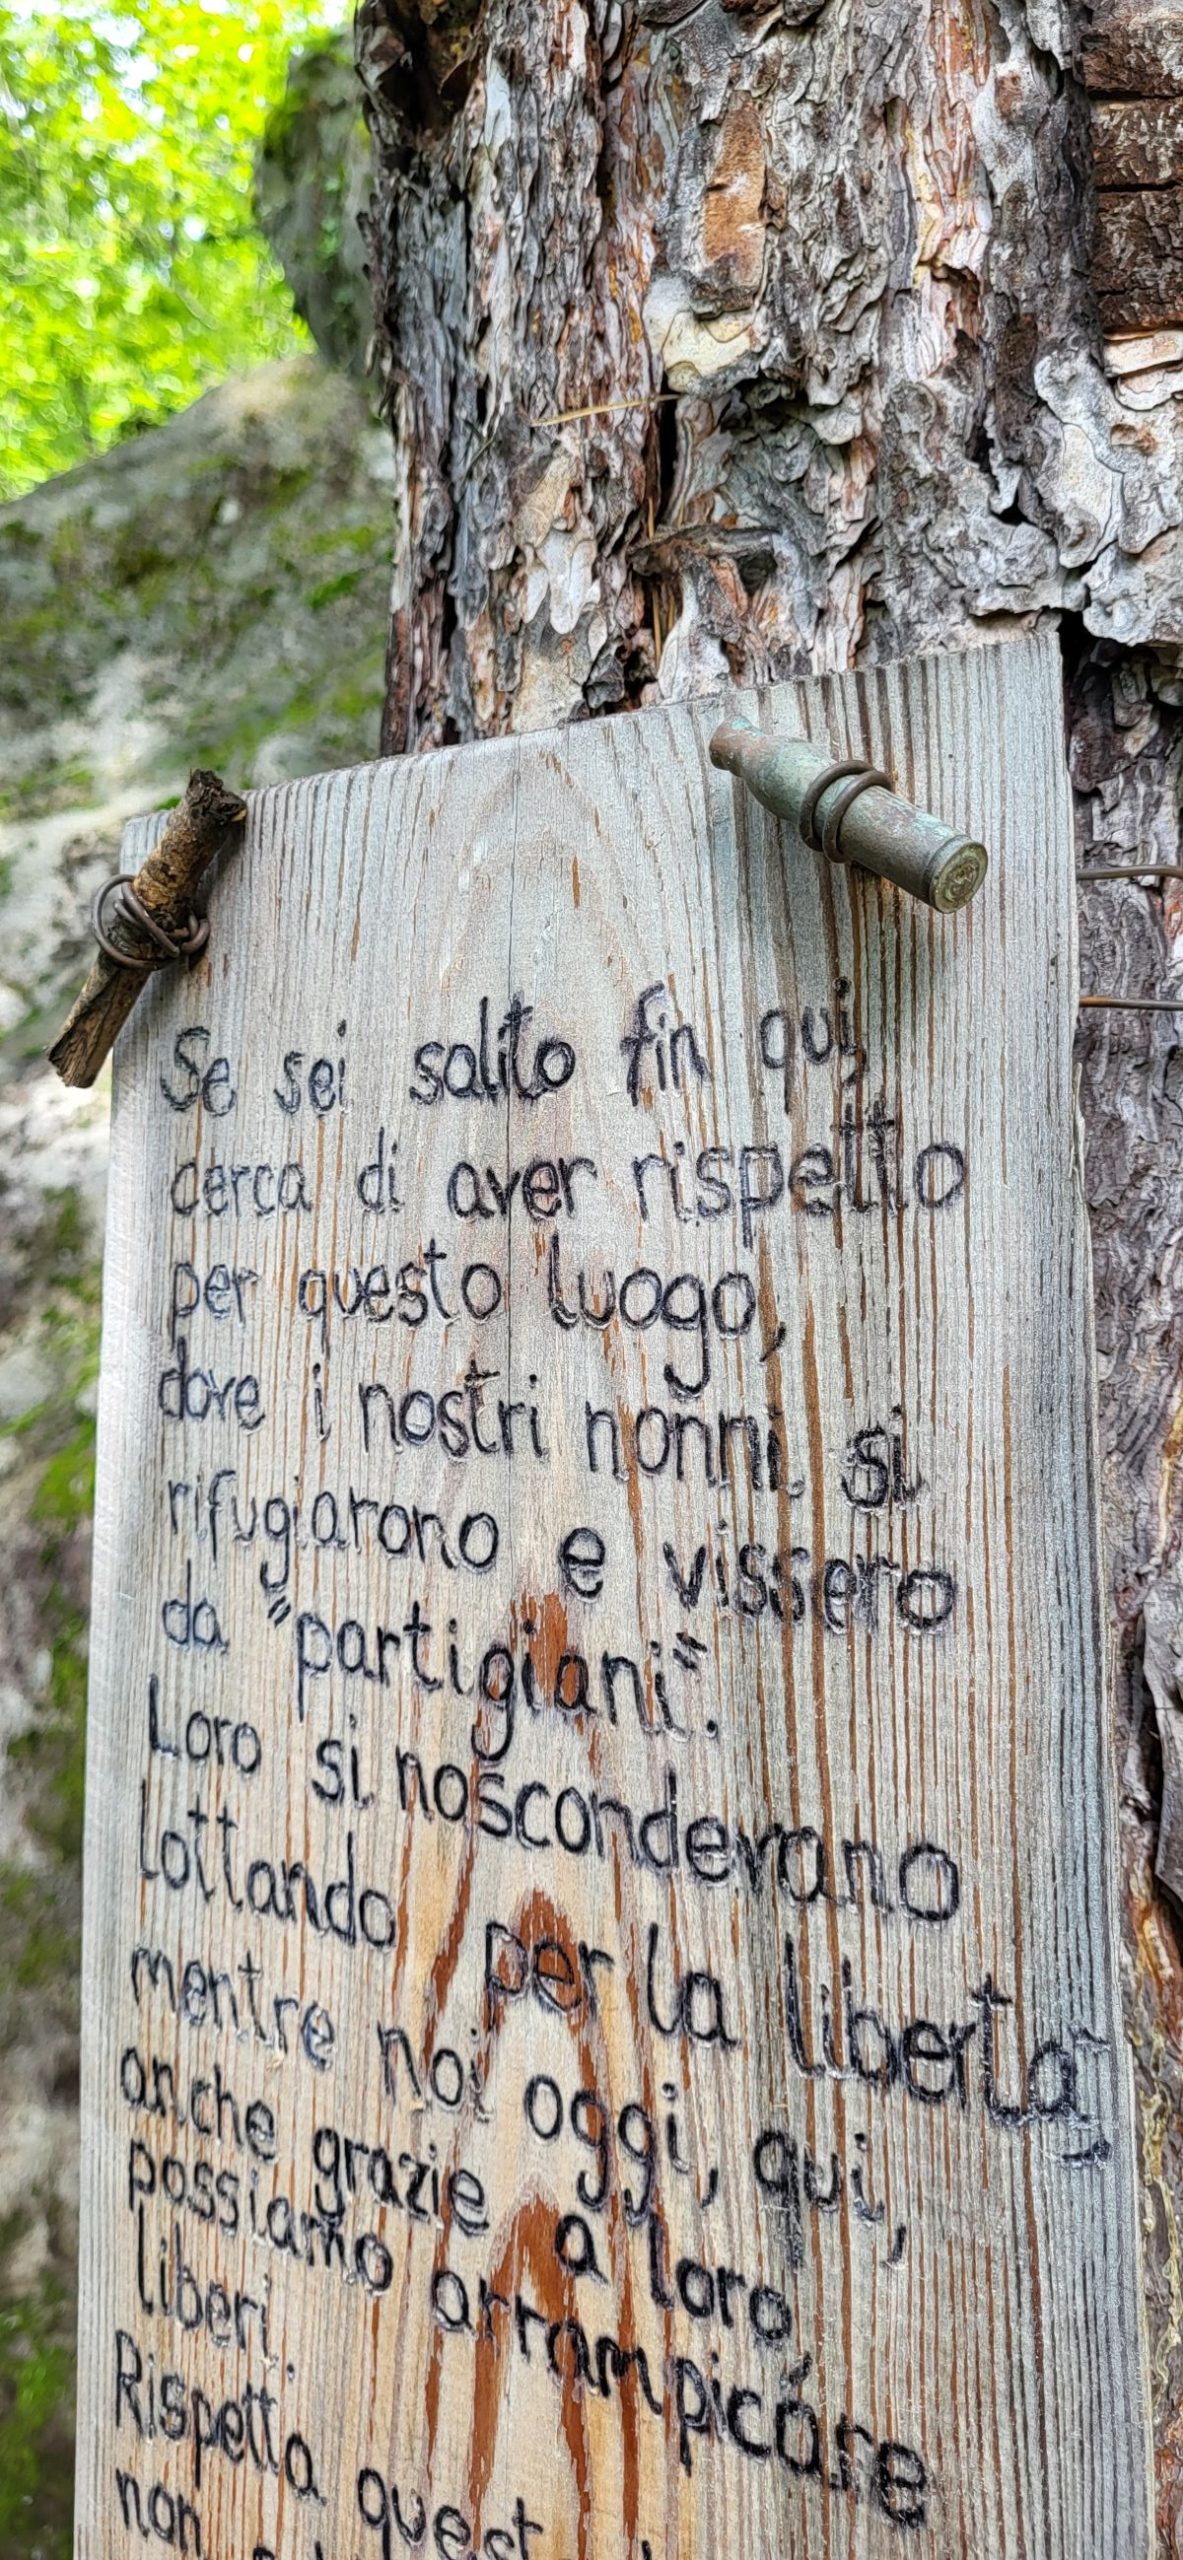 Se sei salito fin qui,
cerca di aver rispetto
per questo luogo,
dove i nostri nonni si
rifugiarono e vissero
da "partigiani".
Loro si noscondevano
lottando per la libertà
mentre noi oggi, qui,
anche grazie a loro,
possiamo arrampicare
liberi.
Rispetta quest
non